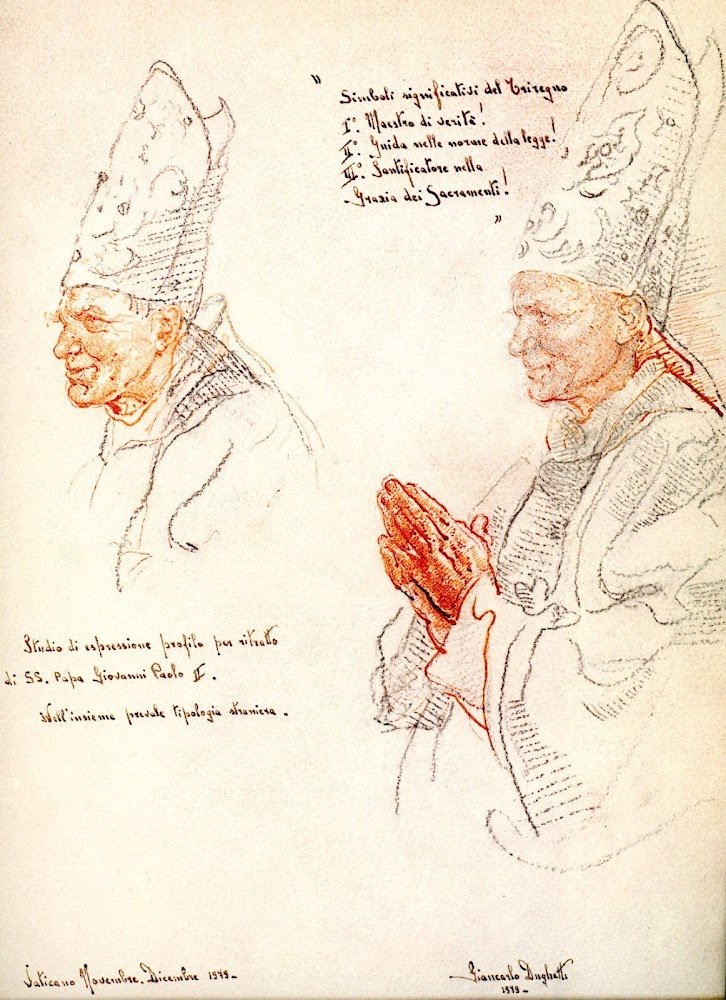 "
Simboli significativi del Triregno
I°. Maestro di verità!
II°. Guida nelle norme della legge!
III°. Santificatore nella
-Grazia dei Sacramenti!
"
Studio di espressione profilo per ritratto
di SS. Papa Giovanni Paolo II.
Nell'insieme prevale tipologia straniera.
Vaticano Novembre. Dicembre 1979-
Giancarlo Dughetti
1979-